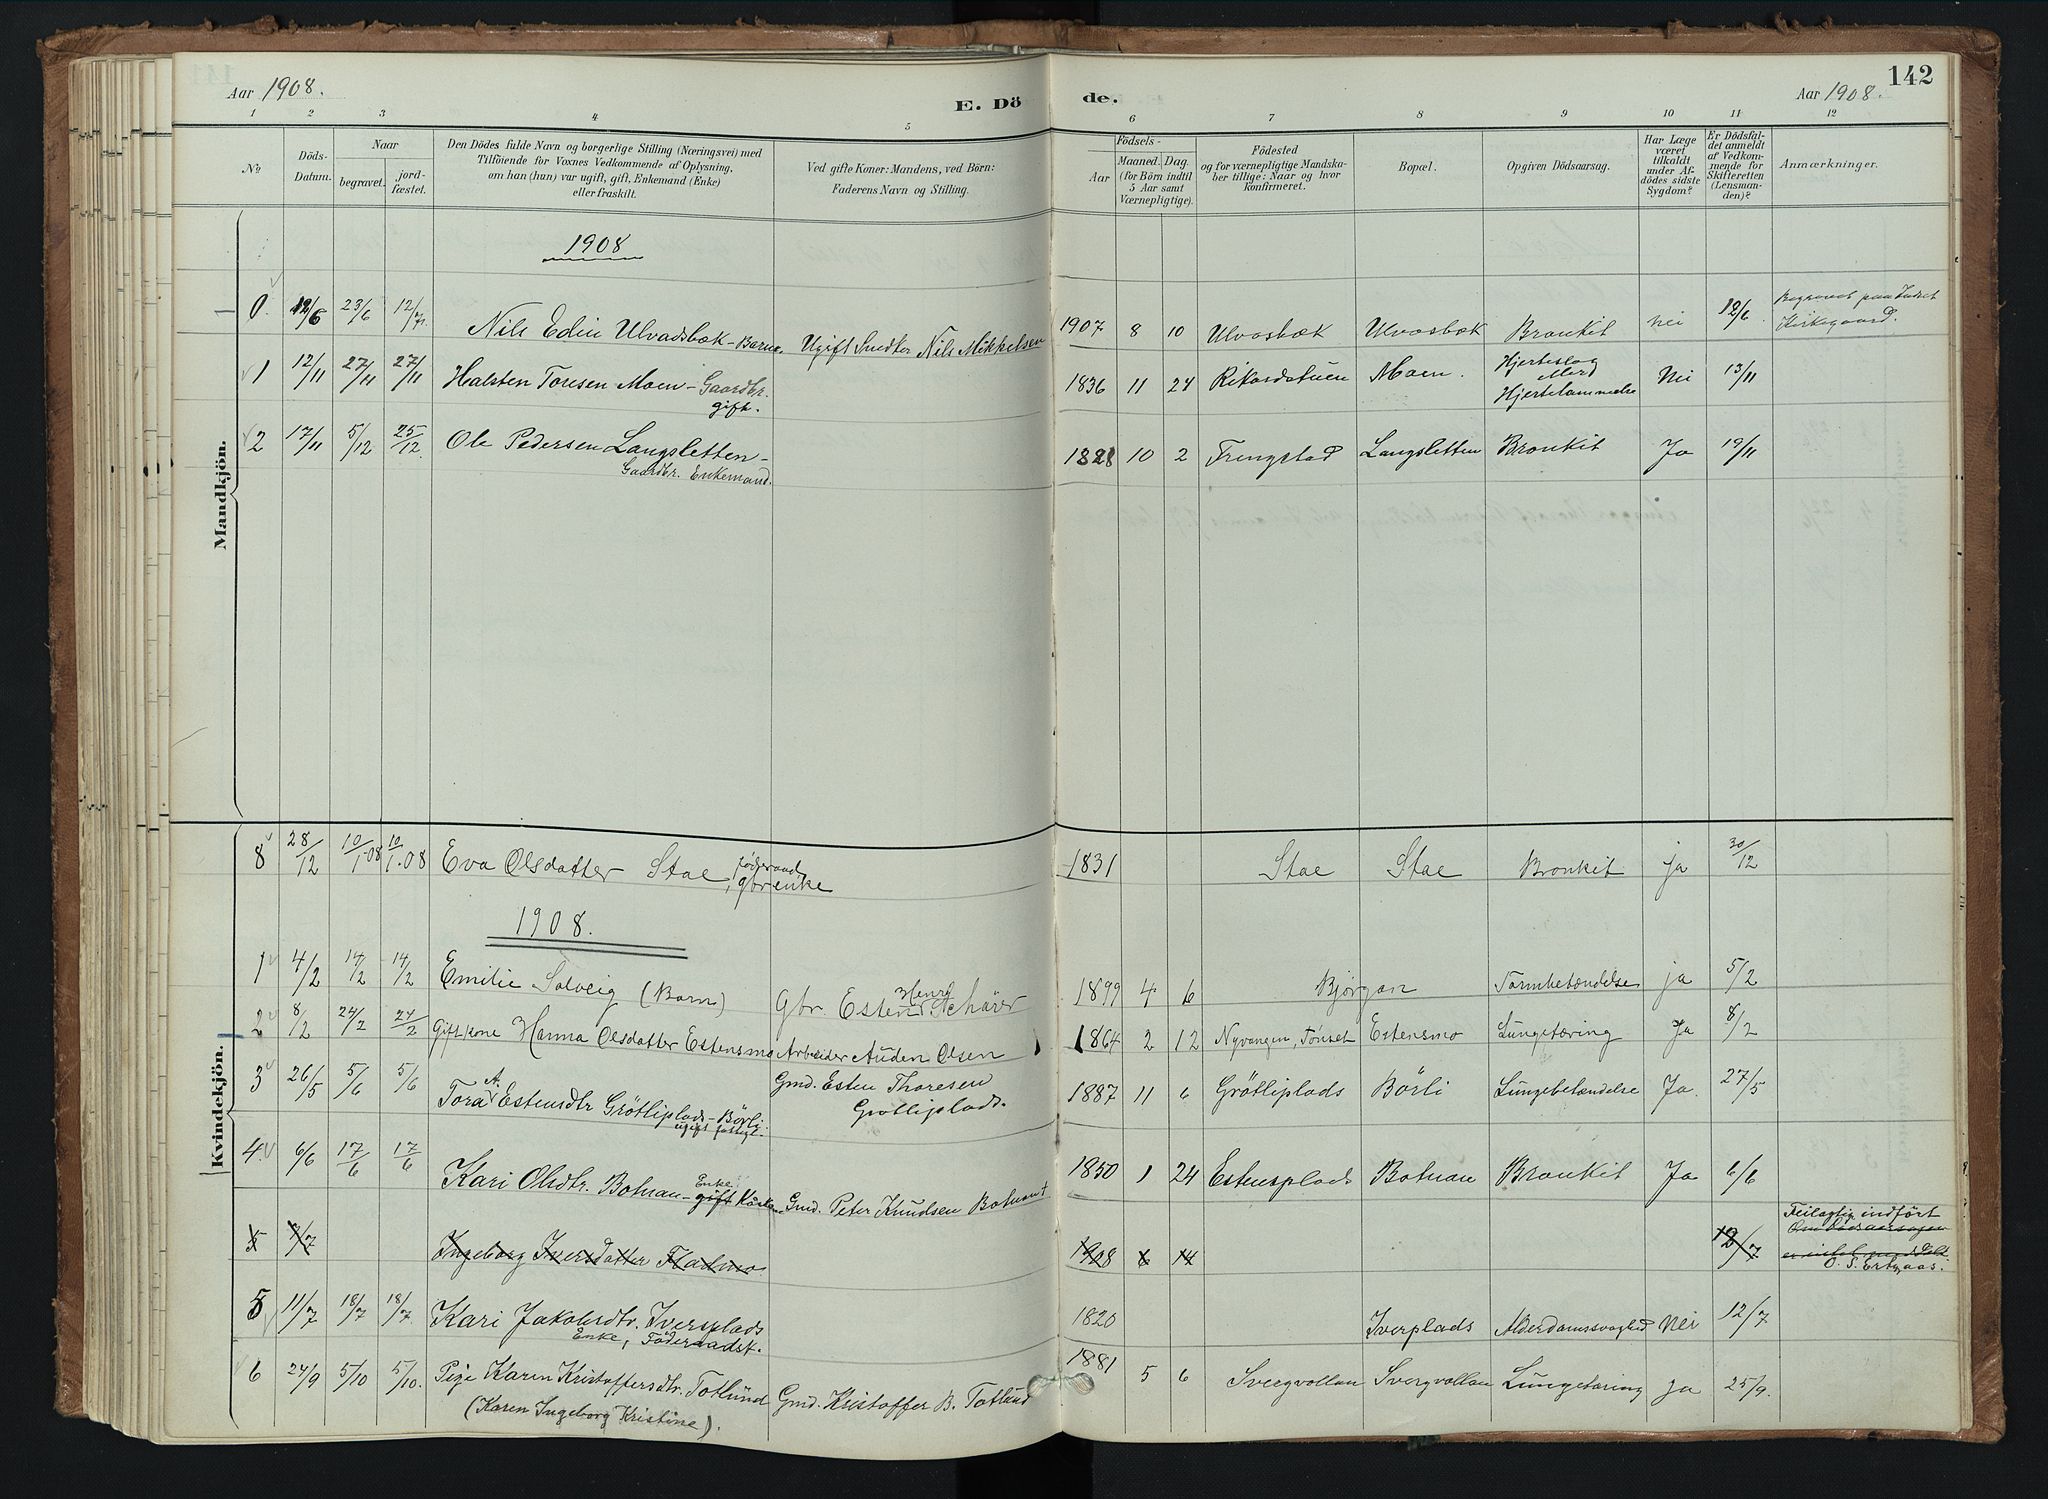 Aar 1908.
E. Döde.
Aar 1908.
142
1 2 3 4 5 6 7 8 9 10 11 12
No.
Döds-Datum.
Naar
begravet.
jord-fæstet.
Den Dödes fulde Navn og borgerlige Stilling (Næringsvei) med
Tilföiende for Voxnes Vedkommende af Oplysning,
om han (hun) var ugift, gift, Enkemand (Enke)
eller fraskilt.
Ved gifte Koner: Mandens, ved Börn:
Faderens Navn og Stilling.
Födsels-
Aar
Maaned. Dag.
(for Börn indtil
5 Aar samt
Værnepligtige).
Födested
og for værnepligtige Mandska-
ber tillige: Naar og hvor
konfirmeret.
Bopæl.
Opgiven Dödsaarsag.
Har Læge
været
tilkaldt
under Af-
dödes sidste
Sygdom?
Er Dödsfal-
det anmeldt
af Vedkom-
mende for
Skifteretten
(Lensman-
den)?
Anmærkninger.
Mandkjön.
1908
0. 12/6 23/6 12/7. Nils Edin Ulvadsbæk - Barn. Ugift Snedker Nils Mikkelsen 1907 8 10 Ulvasbæk Ulvasbæk Bronkit Nei 12/6 Begravet paa Indset
Kirkegaard.
1 12/11 27/11 27/11 Halsten Toresen Moen - Gaardbr.
gift. 1836 11 24 Rikardstuen Moen. Hjerteslag
Hjertelammelse Nei 13/11
2 17/11 5/12 25/12 Ole Pedersen Langsletten -
Gaardbr. Enkemand. 1828 10 2 Frengstad Langsletten Bronkit Ja 19/11
Kvindekjön.
8 28/12 10/1-08 10/1-08 Eva Olsdatter Stae föderaad,
gbrenke 1831 Stae Stae Bronkit ja 30/12
1908.
1 4/2 14/2 14/2 Emilie Solveig (Barn) Gbr. Esten Henrik Schärer 1899 4 6 Bjørgan Tarmbetændelse ja 5/2
2 8/2 24/2 24/2 Gift kone Hanna Olsdatter Estensmo Arbeider Auden Olsen 1864 2 12 Nyvangen, Tönset Estensmo Lungetæring Ja 8/2
3 26/5 5/6 5/6 Tora A. Estensdtr Grötliplads - Börli
ugift Gmd. Esten Thoresen
Grötliplads. 1887 11 6 Grötliplads Börli Lungebetændelse Ja. 27/5
4. 6/6 17/6 17/6 Kari Olsdtr. Botnan - Enke
gift Gmd. Peter Knudsen Botnan † 1850 1 24 Estensplads Botnan Bronkit Ja 6/6
5 7/7 Ingeborg Iversdatter Fladmo 1908 6 14 12/7 Feilagtig indfört
Om Dödsaarsagen
5 11/7 18/7 18/7 Kari Jakobsdtr. Iversplads
Enke, Föderaadst. 1820 Iverplads Alderdomssvaghed Nei 12/7
6 24/9 5/10 5/10. Pige Karen Kristoffersdtr. Totlund
(Karen Ingeborg Kristine). Gmd. Kristoffer B. Totlund 1881 5 6 Svergvollan Svergvollan Lungetæring ja 25/9.